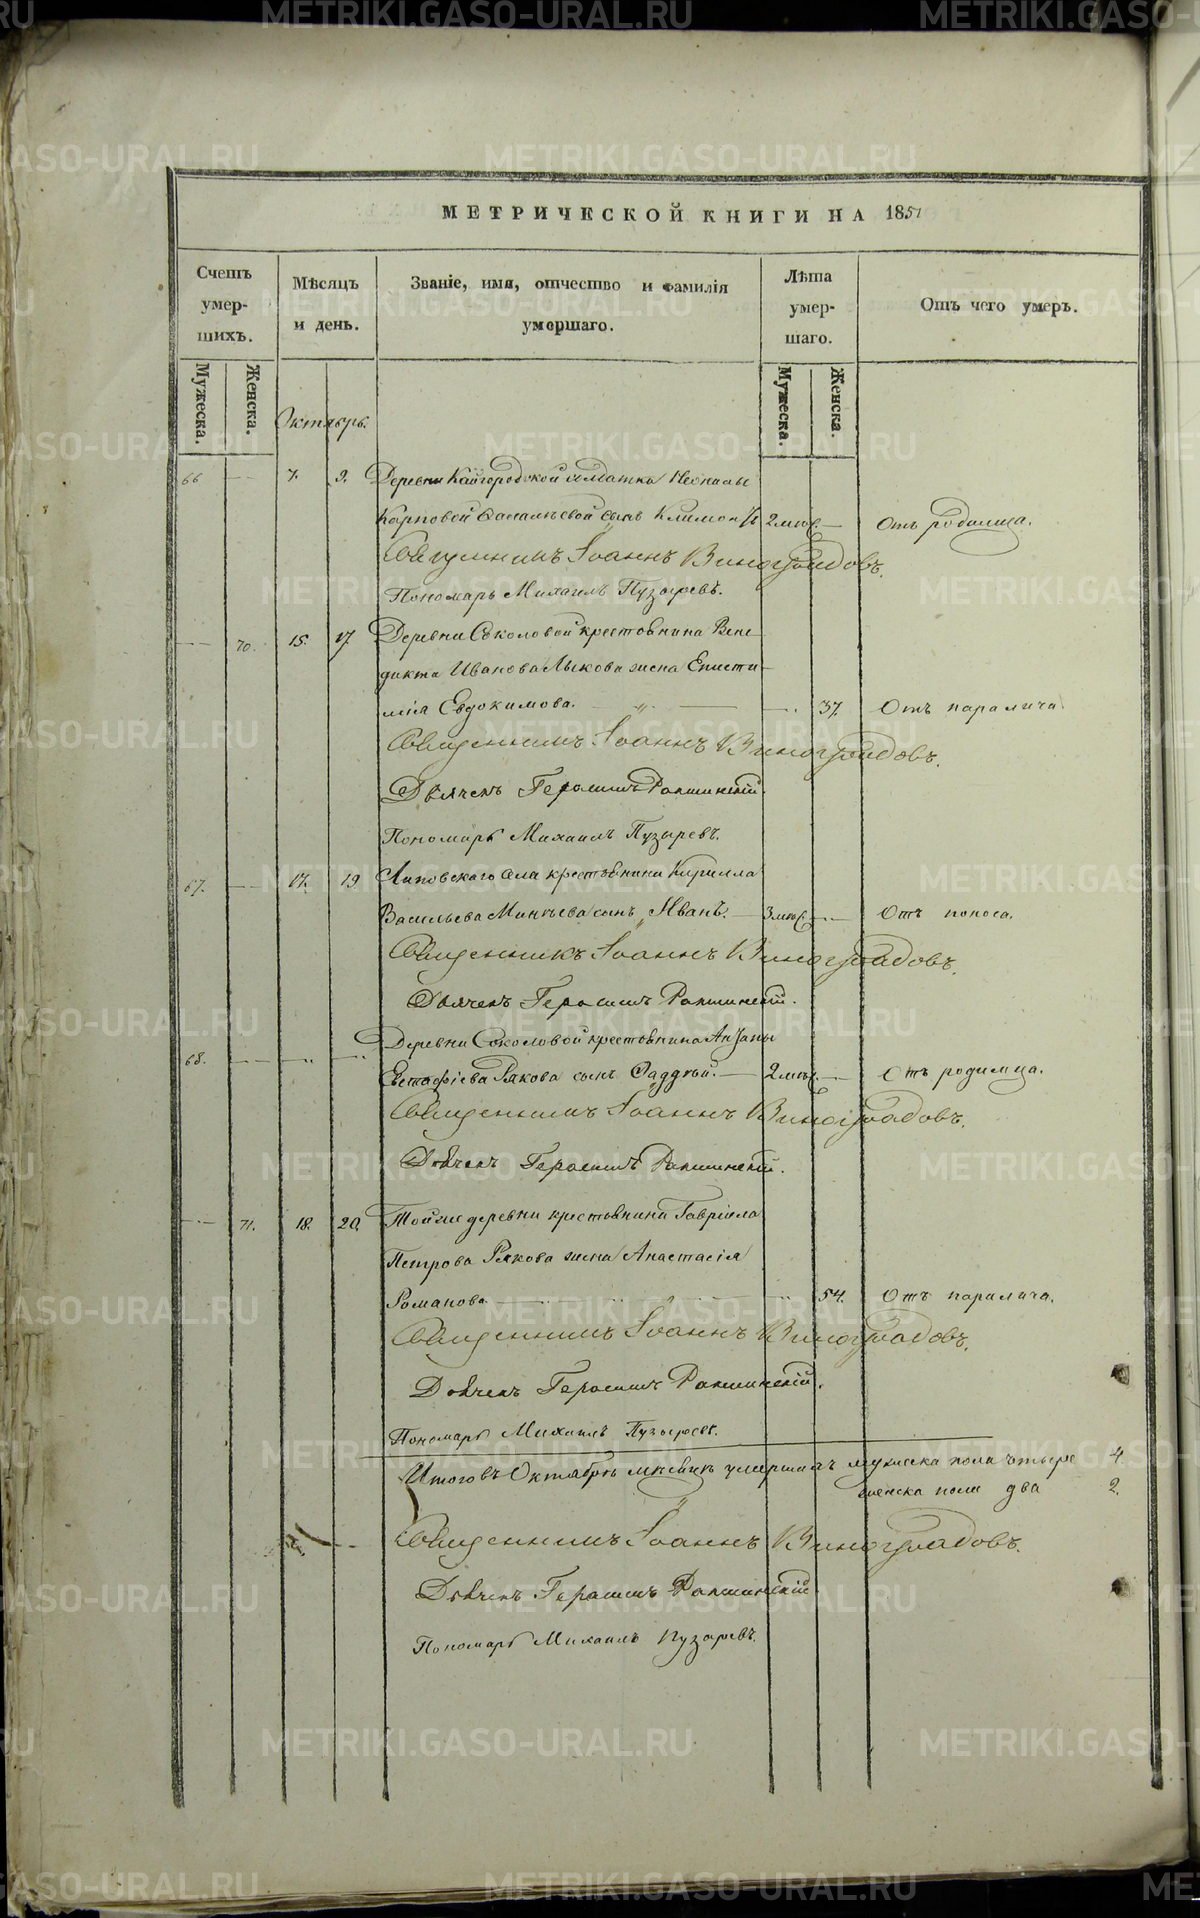 МЕТРИЧЕСКОЙ КНИГИ НА 1851
Счетъ умершихъ.
Мѣсяцъ и день.
Званіе, имя, отчество и фамилія умершаго.
Лѣта умершаго.
Отъ чего умеръ.
Мужеска. Женска. Мужеска. Женска.
Октябрь.
66 7. 9. Деревни Кайгородской солдатки Неонилы
Карповой сынъ Климонтъ 2 мѣс. Отъ родимца.
Священникъ Іоаннъ Виноградовъ.
Пономарь Михаилъ Пузыревъ.
70. 15. 17. Деревни Соколовой крестьянина Вене
дикта Иванова Лыкова жена Еписти
мія Евдокимова. 37. Отъ паралича
Священникъ Іоаннъ Виноградовъ.
Дьячекъ Герасимъ Рапшинскій.
Пономарь Михаилъ Пузыревъ.
67. 17. 19 Липовскаго села крестьянина Кирилла
Васильева Минѣева сынъ Иванъ. 3 мѣс. Отъ поноса.
Священникъ Іоаннъ Виноградовъ.
Дьячекъ Герасимъ Рапшинскій.
68. Деревни Соколовой крестьянина
Евстафіева Рякова сынъ Фаддѣй. 2 мѣс. Отъ родимца.
Священникъ Іоаннъ Виноградовъ.
Дьячекъ Герасимъ Рапшинскій.
71. 18. 20. Той же деревни крестьянина Гавріила
Петрова Рякова жена Анастасія
Романова. 54. Отъ паралича.
Священникъ Іоаннъ Виноградовъ.
Дьячекъ Герасимъ Рапшинскій.
Пономарь Михаилъ Пузыревъ.
Итого въ Октябрѣ мѣсяцѣ умершихъ мужеска пола четыре 4.
женска пола два 2.
Священникъ Іоаннъ Виноградовъ.
Дьячекъ Герасимъ Рапшинскій
Пономарь Михаилъ Пузыревъ.
METRIKI.GASO-URAL.RU